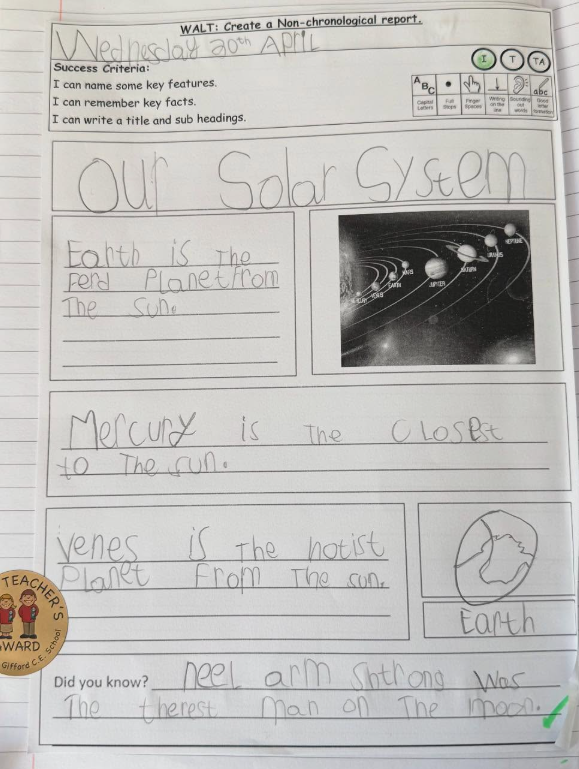 WALT: Create a Non-chronological report.
Wednesday 20th April
Success Criteria:
I T TA
I can name some key features.
I can remember key facts.
I can write a title and sub headings.
A B C
abc
Capital Letters
Full Stops
Finger Spaces
Writing on the line
Sounding out words
Our Solar System
Earth is The
Ferd Planet from
The Sun.
MARS
EARTH
VENUS
JUPITER
SATURN
URANUS
NEPTUNE
Mercury is The Closest
to The sun.
Venes is The hotist
Planet From The sun.
Earth
TEACHER'S
AWARD
Gifford C.E. School
Did you know? neel arm Shthong Was
The therest man on The moon.